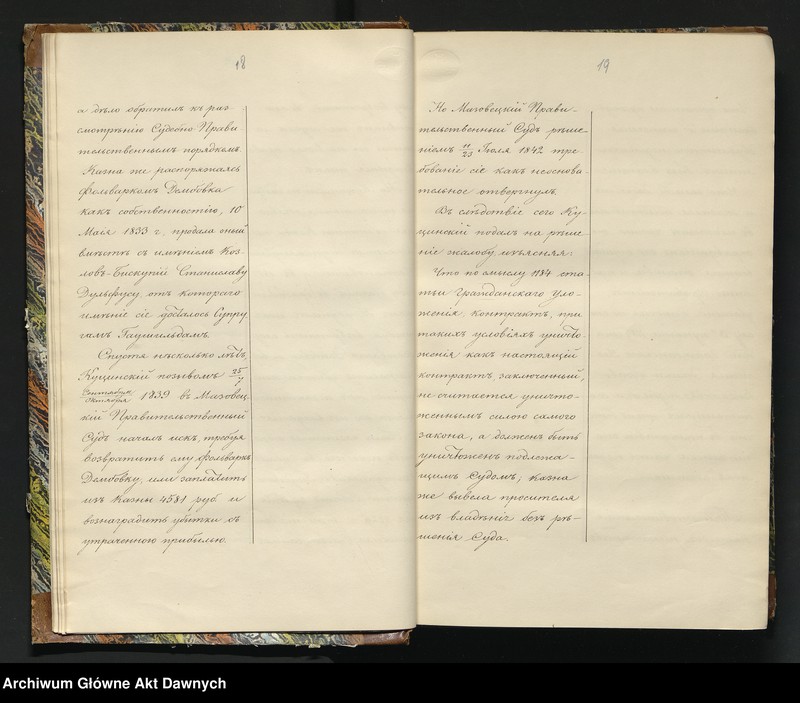 18
а дѣло обратилъ къ раз-
смотрѣнію Судебно-Прави
тельственнымъ порядкомъ.
Казна же распоряжаясь
фольваркомъ Дембовка
какъ собственностію, 10
Маія 1833 г., продала оный
вмѣстѣ съ имѣніемъ Коз-
ловъ-Бискупій Станиславу
Дульфусу, отъ котораго
имѣніе сіе досталось Супру
гамъ Гаушильдамъ.
Спустя нѣсколько лѣтъ,
Куцинскій позывомъ 25/7
Сентября/Октября 1839 въ Мазовец
кій Правительственный
Судъ началъ искъ, требуя
возвратить ему фольваркъ
Дембовку, или заплатить
изъ Казны 4581 руб и
вознаградить убытки съ
утраченною прибылью.
19
Но Мазовецкій Прави-
тельственный Судъ рѣше-
ніемъ 11/23 Іюля 1842 тре
бованіе сіе какъ неоснова-
тельное отвергнулъ.
Въ слѣдствіе сего Ку-
цинскій подалъ на рѣше-
ніе жалобу, изъясняя:
Что по смыслу 1184 ста-
тьи Гражданскаго Уло-
женія, контрактъ, при
такихъ условіяхъ уничто-
женія какъ настоящій
контрактъ, заключенный,
не считается уничто-
женнымъ силою самого
закона, а долженъ быть
уничтоженъ подлежа-
щимъ Судомъ; казна
же вывела просителя
изъ владѣнія безъ рѣ-
шенія Суда.
Archiwum Główne Akt Dawnych